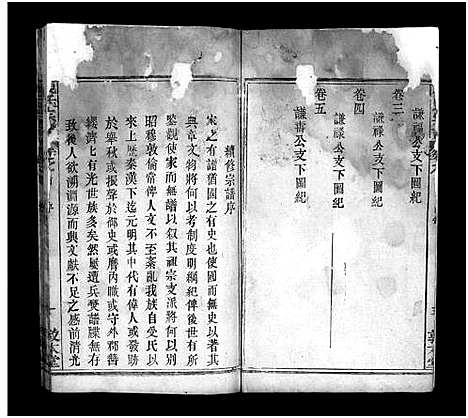 謙祿公支下圖紀
卷三
謙祿公支下圖紀
卷四
謙祿公支下圖紀
卷五
謙壽公支下圖紀
敦本堂
續修宗譜序
家之有譜猶國之有史也使國而無史以考其
典章文物將何以考制度明紀綱俾後世有所
鑒觀使家而無譜以敘其祖宗支派將何以序
昭穆敦倫常俾人文不至紊亂我族自受氏以
來上歷秦漢下迄元明其中代有偉人或掇巍科
於舉秋或振聲於御史或膺內職或守外郡簪
纓濟比有光世族多矣然屢遭兵燹譜牒無存
致後人欲溯淵源而興文獻不足之感前清光
敦本堂